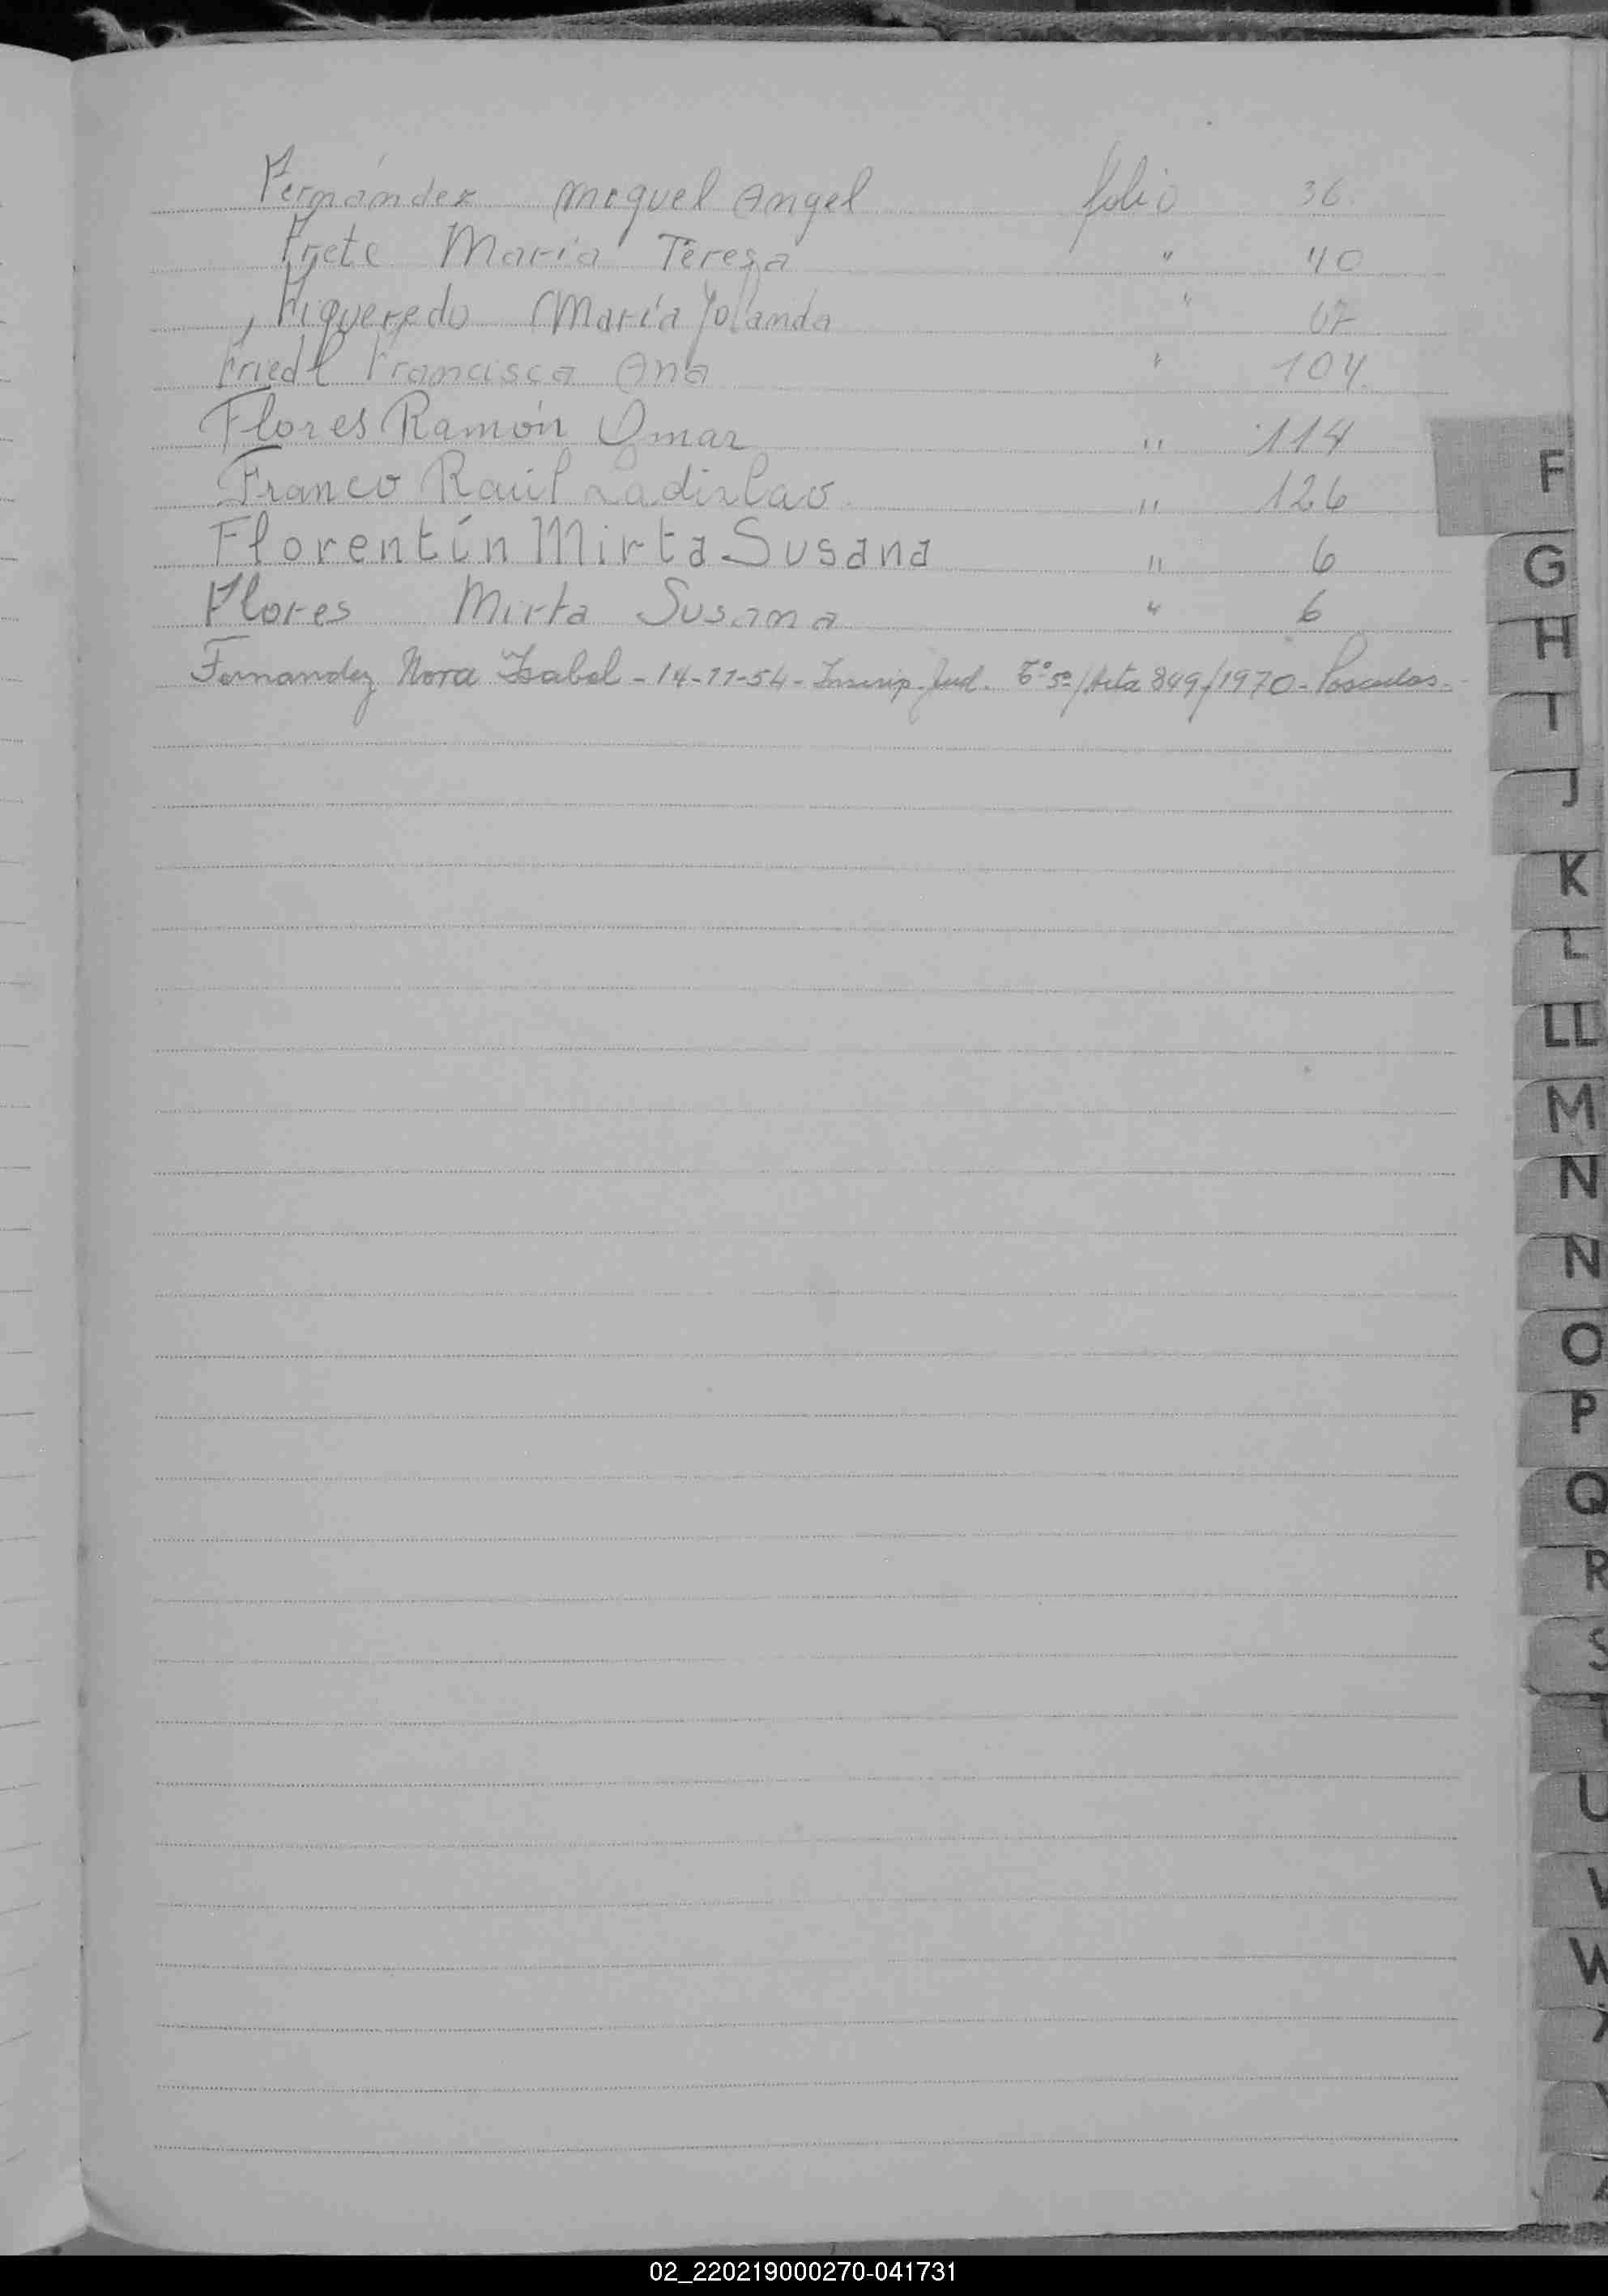 Fernández Miguel Angel folio 36
Frete María Teresa " 40
Figueredo María Yolanda " 67
Friedl Francisca Ana " 104
Flores Ramón Omar " 114
Franco Raúl Ladislao " 126
Florentín Mirta Susana " 6
Flores Mirta Susana " 6
Fernandez Nora Isabel - 14-11-54 - Inscrip. Jud. Tº 5º / Acta 849/1970 - Posadas -
F
G
H
I
J
K
L
LL
M
N
N
O
P
Q
R
S
T
U
V
W
X
02_220219000270-041731